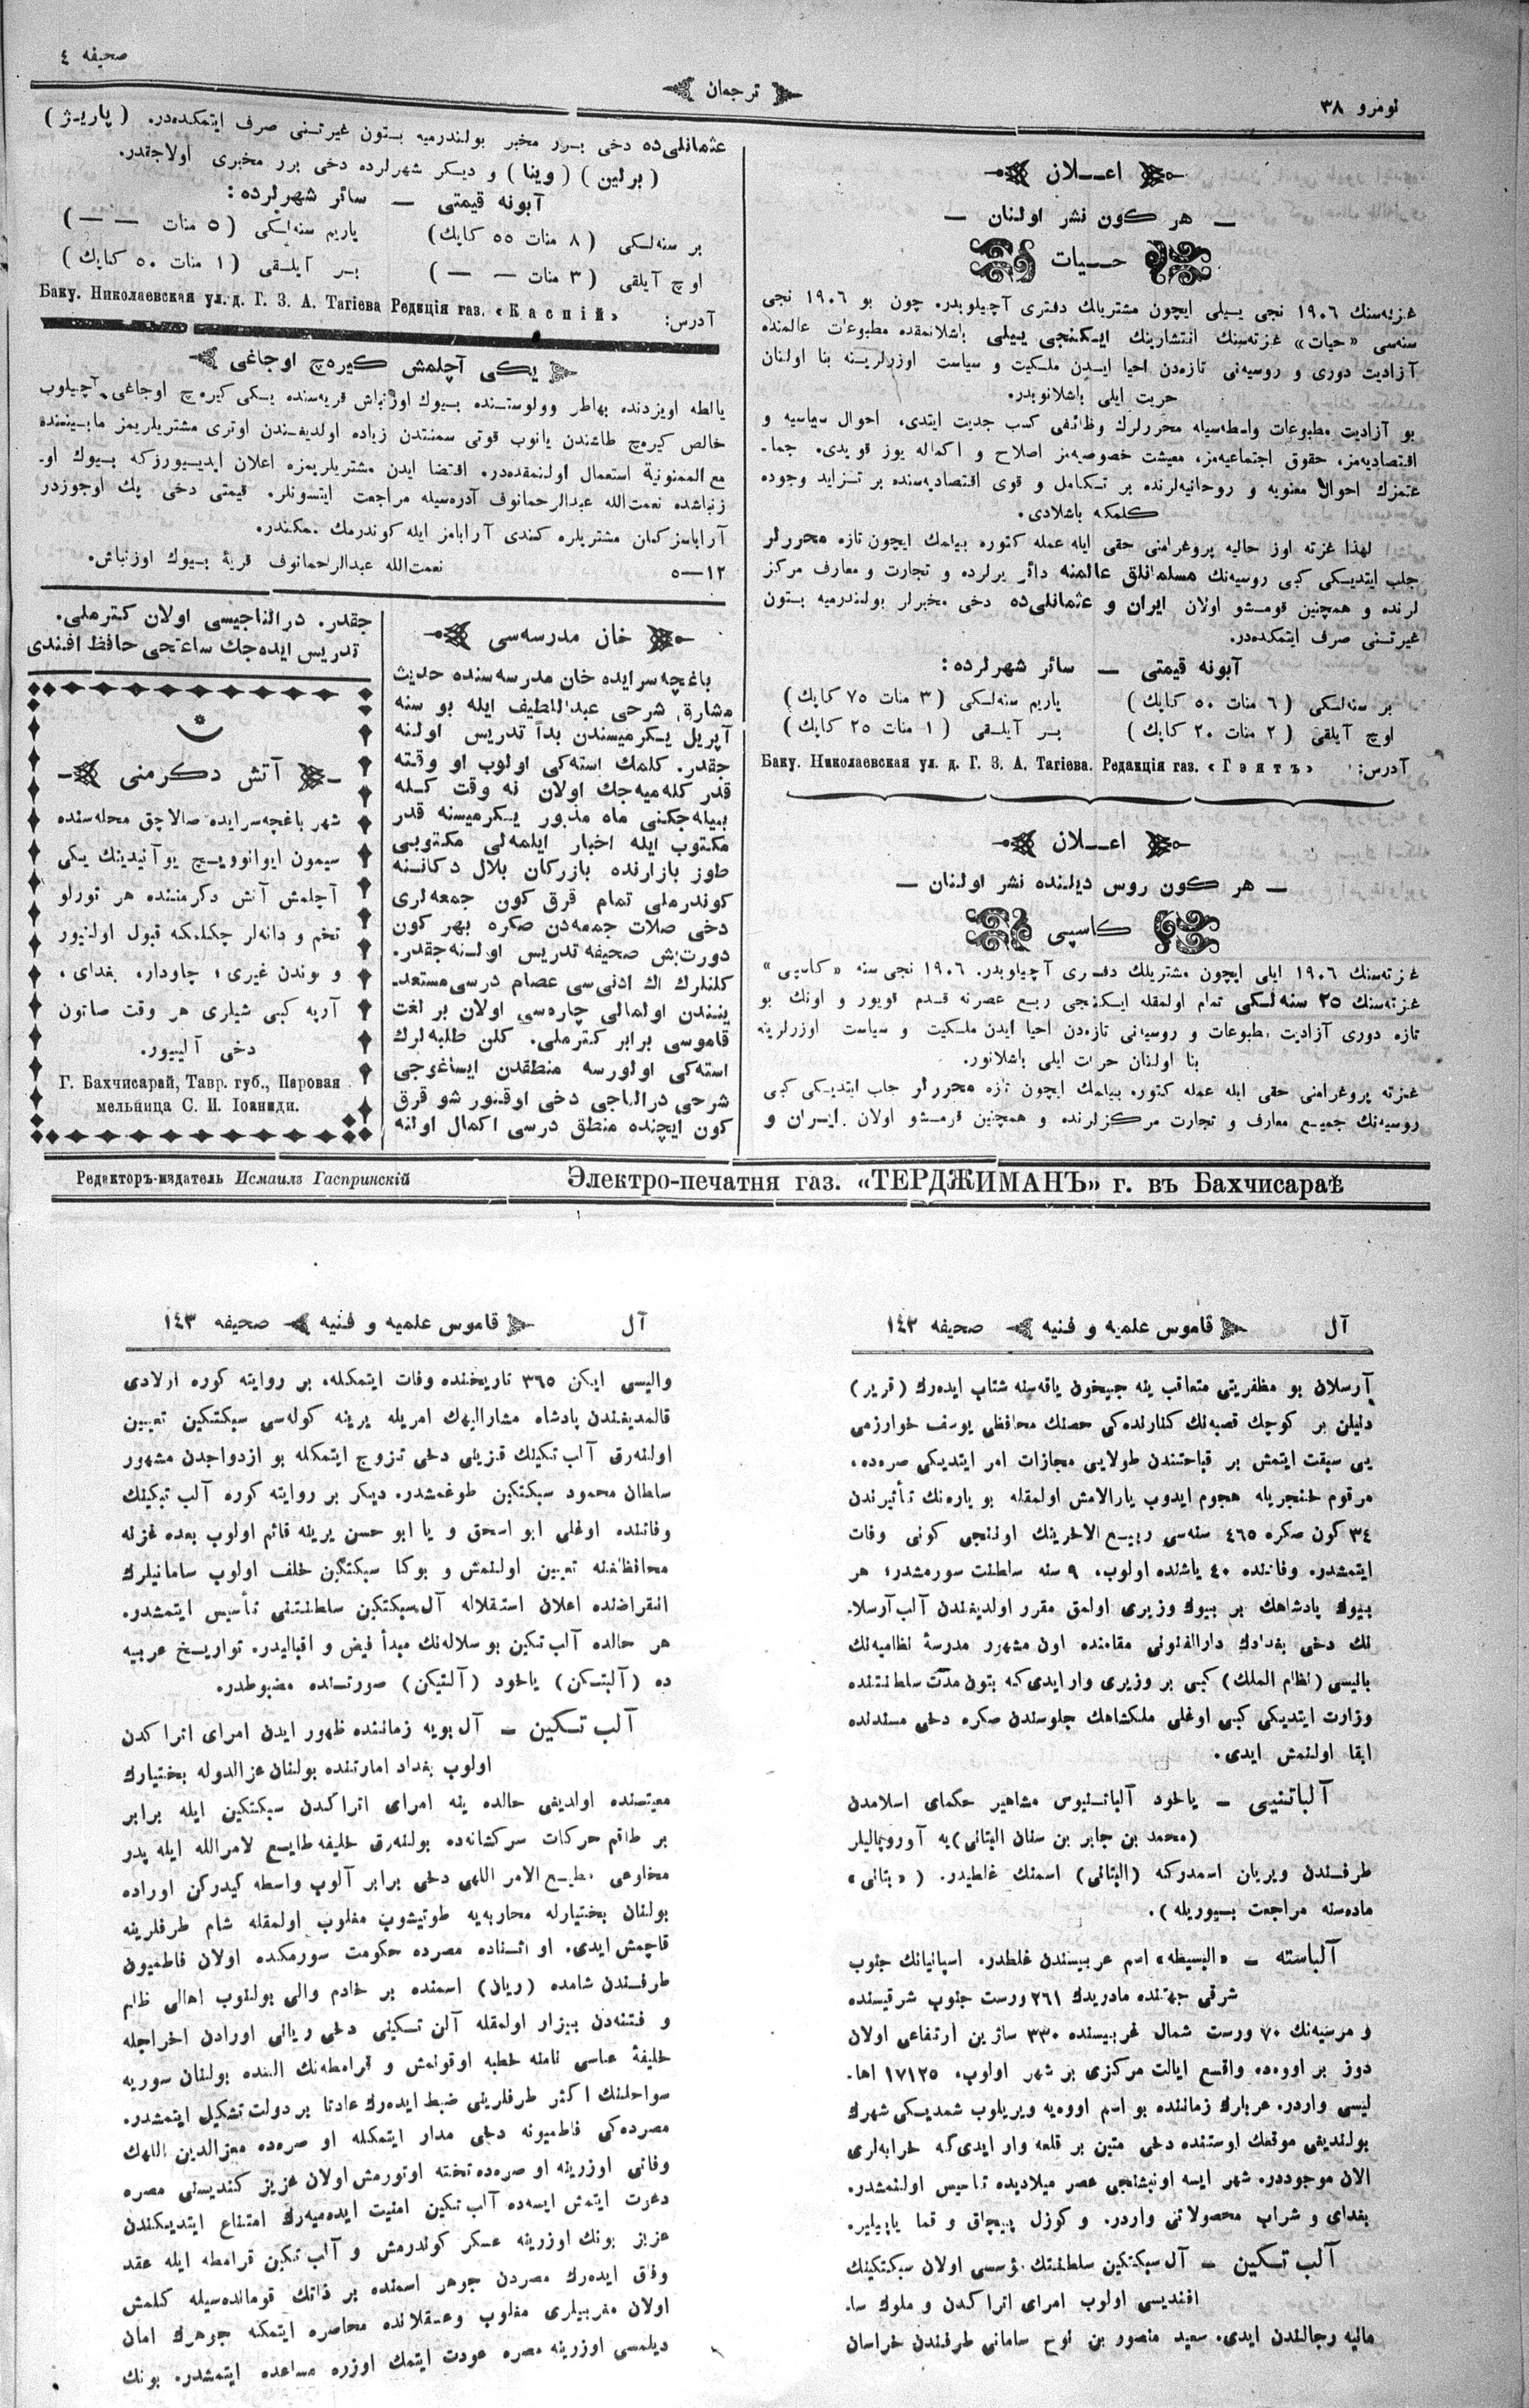 نومرو ٣٨
ترجمان
صحیفه ٤
اعــلان
— هر كون نشر اولنان —
حــیات
غزیه‌سنك ١٩٠٦ نجی ییلی ایچون مشتریلك دفتری آچیلوبدر. چون بو ١٩٠٦ نجی
سنه‌سی «حیات» غزته‌سنك انتشارینك ایكنجی ییلی باشلانمقده مطبوعات عالمنده
آزادیت دوری و روسیه‌نی تازه‌دن احیا ایدن ملكیت و سیاست اوزرلرینه بنا اولنان
حریت ایلی باشلانوبدر.
بو آزادیت مطبوعات واسطه‌سیله محررلرك وظائفی كسب جدیت ایتدی، احوال سیاسیه و
اقتصادیه‌مز، حقوق اجتماعیه‌مز، معیشت خصوصیه‌مز اصلاح و اكماله یوز قویدی. جما-
عتمزك احوال معنویه و روحانیه‌لرنده بر تكامل و قوی اقتصادیه‌سنده بر تزاید وجوده
كلمكه باشلادی.
لهذا غزته اوز حالیه پروغرامنی حقی ایله عمله كتوره بیلمك ایچون تازه محررلر
جلب ایتدیكی كبی روسیه‌نك مسلمانلق عالمنه دائر یرلرده و تجارت و معارف مركز
لرنده و همچنین قومشو اولان ایران و عثمانلی‌ده دخی مخبرلر بولندرمیه بتون
غیرتنی صرف ایتمكده‌در.
آبونه قیمتی — سائر شهرلرده:
بر سنه‌لكی (٦ منات ٥٠ كاپك) یاریم سنه‌لكی (٣ منات ٧٥ كاپك)
اوچ آیلقی (٢ منات ٢٠ كاپك) بــر آیلــقی (١ منات ٢٥ كاپك)
آدرس: Баку. Николаевская ул. д. Г. З. А. Тагіева. Редакція газ. «Гәятъ»
اعــلان
— هر كون روس دیلنده نشر اولنان —
كاسپی
غزته‌سنك ١٩٠٦ ایلی ایچون مشتریلك دفتری آچیلوبدر. ١٩٠٦ نجی سنه «كاسپی»
غزته‌سنك ٢٥ سنه‌لكی تمام اولمقله ایكنجی ربع عصرنه قدم قویور و اونك بو
تازه دوری آزادیت مطبوعات و روسیانی تازه‌دن احیا ایدن ملكیت و سیاست اوزرلرینه
بنا اولنان حریت ایلی باشلانور.
غزته پروغرامنی حقی ایله عمله كتوره بیلمك ایچون تازه محررلر جلب ایتدیكی كبی
روسیه‌نك جمیع معارف و تجارت مركزلرنده و همچنین قومشو اولان ایران و
عثمانلی‌ده دخی برر مخبر بولندرمیه بتون غیرتنی صرف ایتمكده‌در. (پاریژ)
(برلین) (وینا) و دیكر شهرلرده دخی برر مخبری اولاجقدر.
آبونه قیمتی — سائر شهرلرده:
بر سنه‌لكی (٨ منات ٥٥ كاپك) یاریم سنه‌لكی (٥ منات — —)
اوچ آیلقی (٣ منات — —) بــر آیلــقی (١ منات ٥٠ كاپك)
آدرس: Баку. Николаевская ул. д. Г. З. А. Тагіева Редкція газ. «Каспій»
یكی آچلمش كیره‌چ اوجاغی
یالطه اویزدنده بهاطر وولوستنده بیوك اوزنباش قریه‌سنده یكی كیره‌چ اوجاغی آچیلوب
خالص كیره‌چ طاشندن یانوب قوتی سمنتدن زیاده اولدیغندن اوتری مشتریلریمز مابیننده
مع الممنونیة استعمال اولنمقده‌در. اقتضا ایدن مشتریلریمزه اعلان ایدییورزكه بیوك او-
زنباشده نعمت‌الله عبدالرحمانوف آدره‌سیله مراجعت ایتسونلر. قیمتی دخی پك اوجوزدر
آراباسز كمان مشتریلره كندی آرابامز ایله كوندرمك ممكندر.
١٢—٥ نعمت‌الله عبدالرحمانوف قریهٔ بیوك اوزنباش.
خان مدرسه‌سی
باغچه‌سرایده خان مدرسه‌سنده حدیث
مشارق شرحی عبداللطیف ایله بو سنه
آپریل یكرمیسندن بدأ تدریس اولنه
جقدر. كلمك استه‌كی اولوب او وقته
قدر كله‌میه‌جك اولان نه وقت كــله
بیله‌جكنی ماه مذبور یكرمیسنه قدر
مكتوب ایله اخبار ایلمه‌لی مكتوبی
طوز بازارنده بازركان بلال دكاننه
كوندرملی تمام قرق كون جمعه‌لری
دخی صلات جمعه‌دن صكره بهر كون
دورت‌بش صحیفه تدریس اولنه‌جقدر.
كلنلرك اك ادنی‌سی عصام درسی مستعد-
یننندن اولمالی چاره‌سی اولان بر لغت
قاموسی برابر كترملی. كلن طلبه‌لرك
استه‌كی اولورسه منطقدن ایساغوجی
شرحی درالناجی دخی اوقنور شو قرق
كون ایچنده منطق درسی اكمال اولنه
جقدر. درالناجیسی اولان كترملی.
تدریس ایده‌جك ساعتجی حافظ افندی
آتش دكرمنی
شهر باغچه‌سرایده صالاچق محله‌سنده
سیمون ایوانوویچ یوآنیدینك یكی
آچلمش آتش دكرمننده هر تورلو
تخم و دانه‌لر چكلمكه قبول اولنیور
و بوندن غیری؛ چاودار، بغدای،
آرپه كبی شیلری هر وقت صاتون
دخی آلییور.
Г. Бахчисарай, Тавр. губ., Паровая
мельница С. И. Іоаниди.
Редакторъ-издатель Исмаилъ Гаспринскій
Электро-печатня газ. «ТЕРДЖИМАНЪ» г. въ Бахчисараѣ
آل قاموس علمیه و فنیه صحیفه ١٤٢
آرسلان بو مظفریتی متعاقب ینه جیحون یاقه‌سنه شتاب ایده‌رك (قریر)
دنیلن بر كوچك قصبه‌نك كنارنده‌كی حصنك محافظی یوسف خوارزمی
یی سبقت ایتمش بر قباحتندن طولایی مجازات امر ایتدیكی صره‌ده،
مرقوم خنجریله هجوم ایدوب یارالامش اولمقله بو یاره‌نك تأثیرندن
٣٤ كون صكره ٤٦٥ سنه‌سی ربیع الاخرینك اوننجی كونی وفات
ایتمشدر. وفاتنده ٤٠ یاشنده اولوب، ٩ سنه سلطنت سورمشدر؛ هر
بیوك پادشاهك بر بیوك وزیری اولمق مقرر اولدیغندن آلب آرسلا-
نك دخی بغدادك دارالفنونی مقامنده اون مشهور مدرسهٔ نظامیه‌نك
بانیسی (نظام الملك) كبی بر وزیری وار ایدی‌كه بتون مدّت سلطنتنده
وزارت ایتدیكی كبی اوغلی ملكشاهك جلوسندن صكره دخی مسندنده
ابقا اولنمش ایدی.
آلباتنیی — یاخود آلباتنیوس مشاهیر حكمای اسلامدن
(محمد بن جابر بن سنان البتانی) یه آوروپالیلر
طرفندن ویریان اسمدركه (البتانی) اسمنك غلطیدر. («بتانی»
ماده‌سنه مراجعت بیوریله).
آلباسته — «البسیطه» اسم عربیسندن غلطدر. اسپانیانك جنوب
شرقی جهتنده مادریدك ٢٦١ ورست جنوب شرقیسنده
و مرسیه‌نك ٧٠ ورست شمال غربیسنده ٣٣٠ ساژین ارتفاعی اولان
دوز بر اووه‌ده واقع ایالت مركزی بر شهر اولوب، ١٧١٢٥ اها-
لیسی واردر. عربلرك زماننده بو اسم اووه‌یه ویریلوب شمدیكی شهرك
بولندیغی موقعك اوستنده دخی متین بر قلعه وار ایدی‌كه خرابه‌لری
الان موجوددر. شهر ایسه اونبشنجی عصر میلادیده تاسیس اولنمشدر.
بغدای و شراب محصولاتی واردر. و كوزل پیچاق و قما یاپیلیر.
آلب تكین — آل سبكتكین سلطنتنك مؤسسی اولان سبكتكینك
افندیسی اولوب امرای اتراكدن و ملوك سا-
مانیه رجالندن ایدی. سعید منصور بن نوح سامانی طرفندن خراسان
آل قاموس علمیه و فنیه صحیفه ١٤٣
والیسی ایكن ٣٦٥ تاریخنده وفات ایتمكله، بر روایته كوره اولادی
قالمدیغندن پادشاه مشارالیهك امریله یرینه كوله‌سی سبكتكین تعیین
اولنه‌رق آلب تكینك قزینی دخی تزوج ایتمكله بو ازدواجدن مشهور
سلطان محمود سبكتكین طوغمشدر. دیكر بر روایته كوره آلب تیكینك
وفاتنده اوغلی ابو اسحق و یا ابو حسن یرینه قائم اولوب بعده غزنه
محافظلغنه تعیین اولنمش و بوكا سبكتكین خلف اولوب سامانیلرك
انقراضنده اعلان استقلاله آل سبكتكین سلطنتنی تأسیس ایتمشدر.
هر حالده آلب تكین بو سلاله‌نك مبدأ فیض و اقبالیدر. تواریخ عربیه
ده (آلبتكن) یاخود (آلتیكن) صورتنده مضبوطدر.
آلب تكین — آل بویه زماننده ظهور ایدن امرای اتراكدن
اولوب بغداد امارتنده بولنان عزالدوله بختیارك
معیتنده اولدیغی حالده ینه امرای اتراكدن سبكتكین ایله برابر
بر طاقم حركات سركشانه‌ده بولنه‌رق خلیفه طایع لامرالله ایله پدر
مخلوعی مطیع الامر اللهی دخی برابر آلوب واسطه كیدركن اوراده
بولنان بختیارله محاربه‌یه طوتیشوب مغلوب اولمقله شام طرفلرینه
قاچمش ایدی. او اثناده مصرده حكومت سورمكده اولان فاطمیون
طرفندن شامده (ریان) اسمنده بر خادم والی بولنوب اهالی ظلم
و فتنه‌دن بیزار اولمقله آلن تكینی دخی ریانی اورادن اخراجله
خلیفهٔ عباسی نامنه خطبه اوقوتمش و قرامطه‌نك النده بولنان سوریه
سواحلنك اكثر طرفلرینی ضبط ایده‌رك عادتا بر دولت تشكیل ایتمشدر.
مصرده‌كی فاطمیونه دخی مدار ایتمكله او صره‌ده معزالدین اللهك
وفاتی اوزرینه او صره‌ده تخته اوتورمش اولان عزیز كندیسنی مصره
دعوت ایتمش ایسه‌ده آلب تكین امنیت ایده‌میه‌رك امتناع ایتدیكندن
عزیز بونك اوزرینه عسكر كوندرمش و آلب تكین قرامطه ایله عقد
وفاق ایده‌رك مصردن جوهر اسمنده بر ذاتك قوماندسیله كلمش
اولان مغربیلری مغلوب وعسقلانده محاصره ایتمكله جوهرك امان
دیلمسی اوزرینه مصره عودت ایتمك اوزره مساعده ایتمشدر. بونك